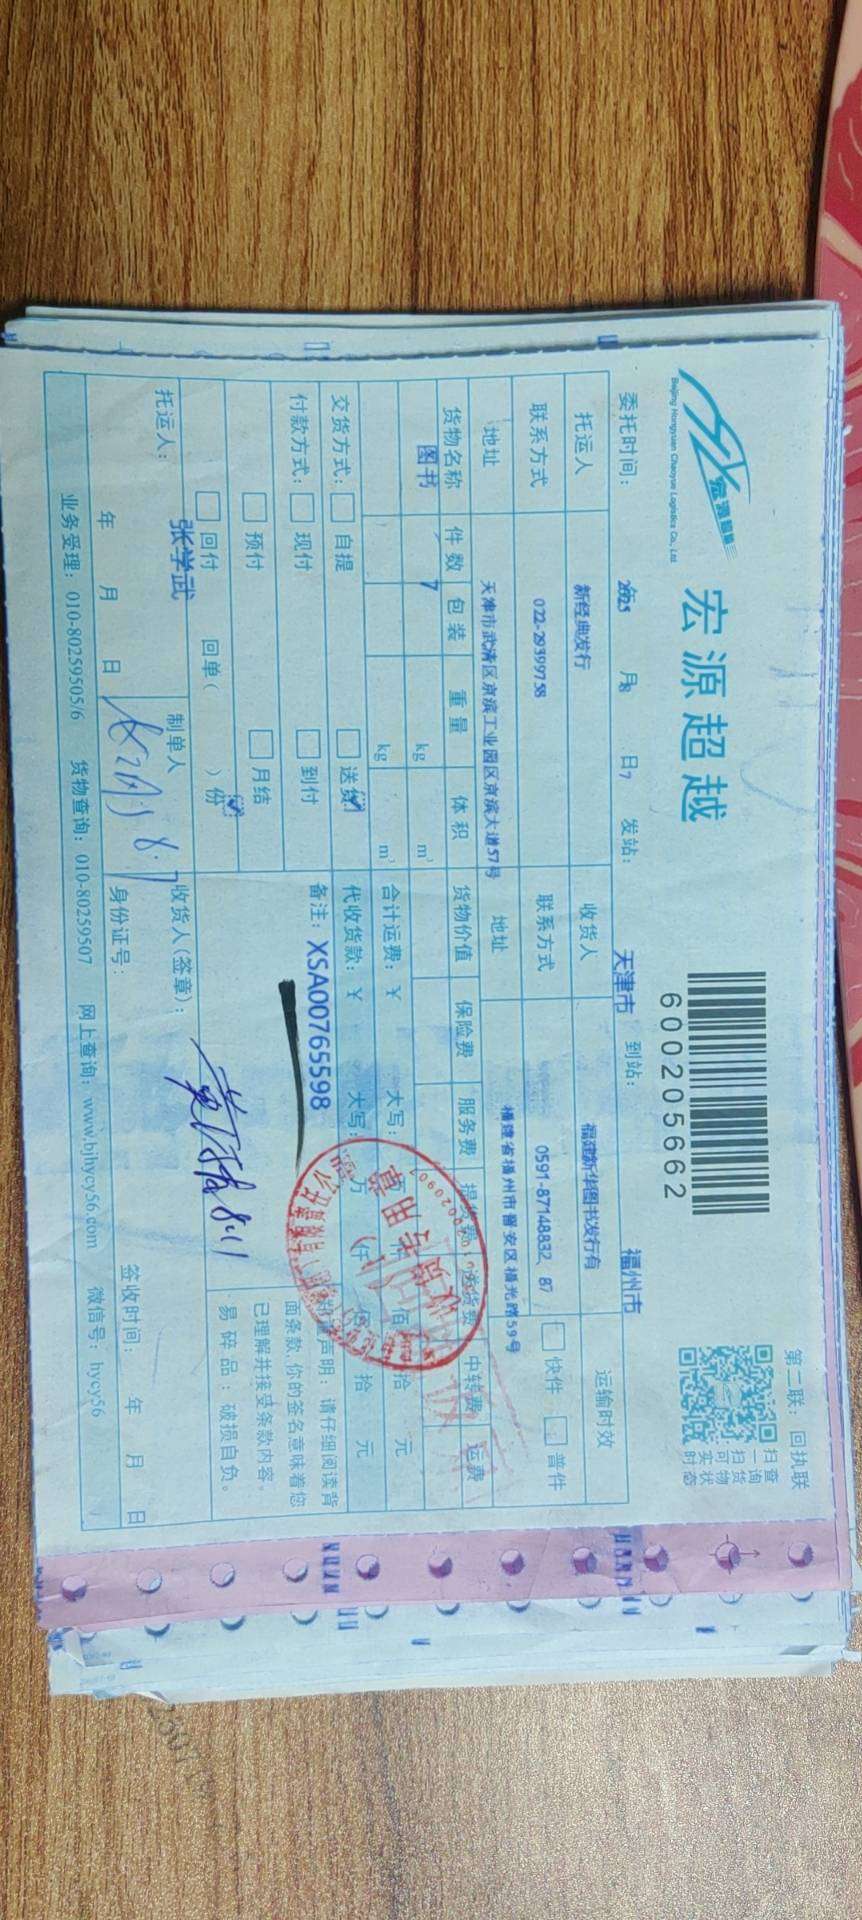 宏源超越
Beijing Hongyuan Chaoyue Logistics Co., Ltd.
宏源超越
6000205662
第二联：回执联
扫一扫可实时
查询货物状态
委托时间： 2025 年 8 月 7 日 发站： 天津市 到站： 福州市
托运人 新经典发行 收货人 福建新华图书发行有 运输时效
联系方式 022-29399758 联系方式 0591-87148832, 87 快件 普件
地址 天津市武清区京滨工业园区京滨大道57号 地址 福建省福州市晋安区福光路59号
货物名称 件数 包装 重量 体积 货物价值 保险费 服务费 提货费 送货费 中转费 运费
图书 7 kg m³
kg m³ 合计运费：￥ 大写： 佰 拾 元
交货方式： 自提 送货 代收货款：￥ 大写： 万 仟 佰 拾 元
付款方式： 现付 到付 备注： XSA00765598
预付 月结
回付 回单（ ）份
声明：请仔细阅读背
面条款，你的签名意味着您
已理解并接受条款内容。
易碎品：破损自负。
收货专用章
(1)
托运人： 张学武 制单人 8.7 收货人(签章)： 8.11
年 月 日 身份证号： 签收时间： 年 月 日
业务受理：010-80259505/6 货物查询：010-80259507 网上查询：www.bjhycy56.com 微信号：hycy56